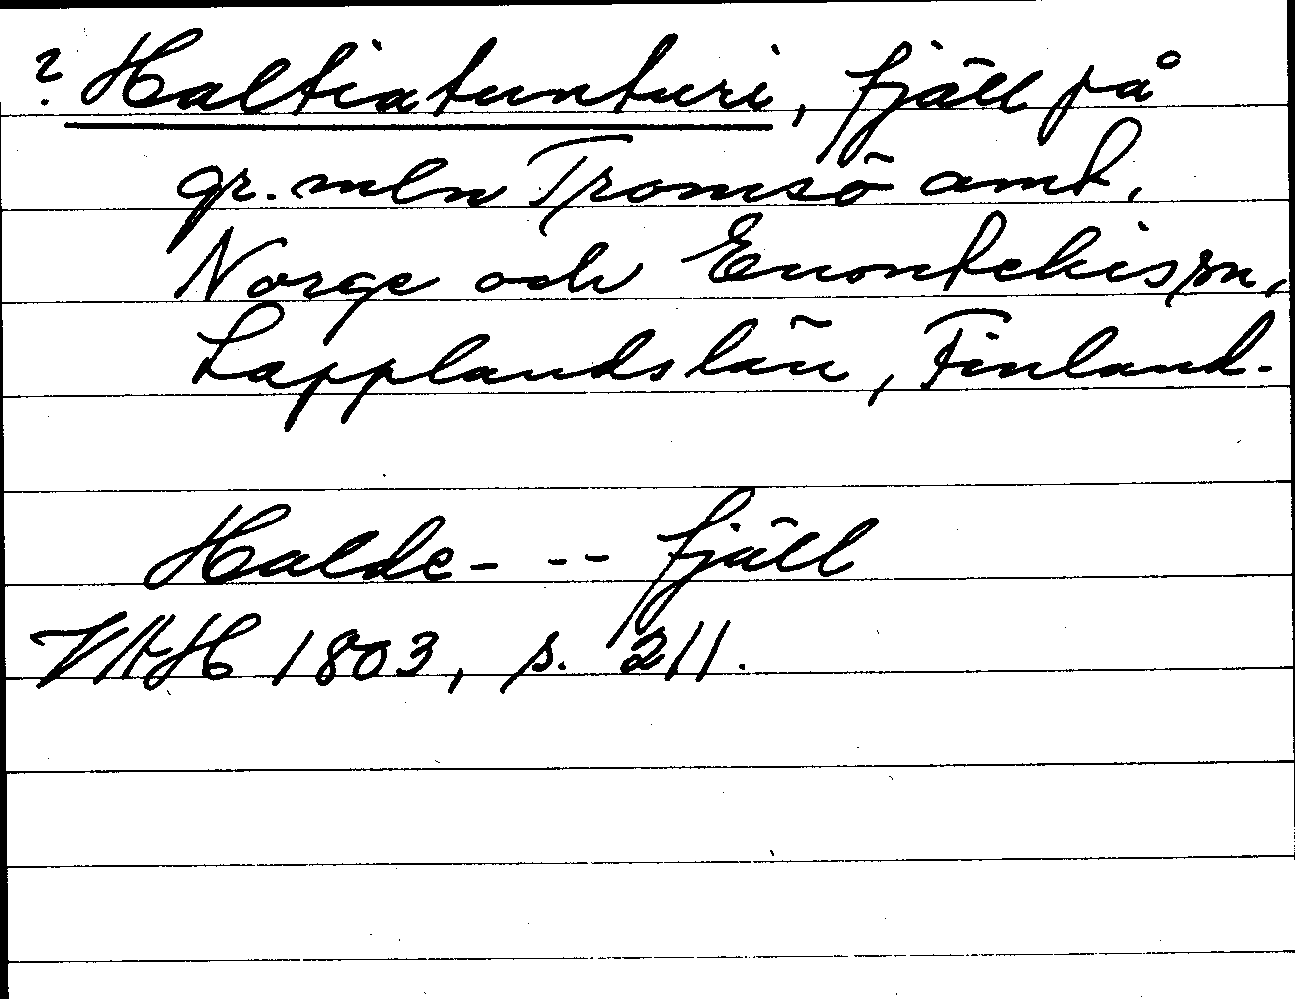 ? Haltiatunturi, fjäll på
gr. mln Tromsö amt,
Norge och Enontekis sn,
Lapplands län, Finland.
Halde- -- fjäll
VAH 1803, s. 211.